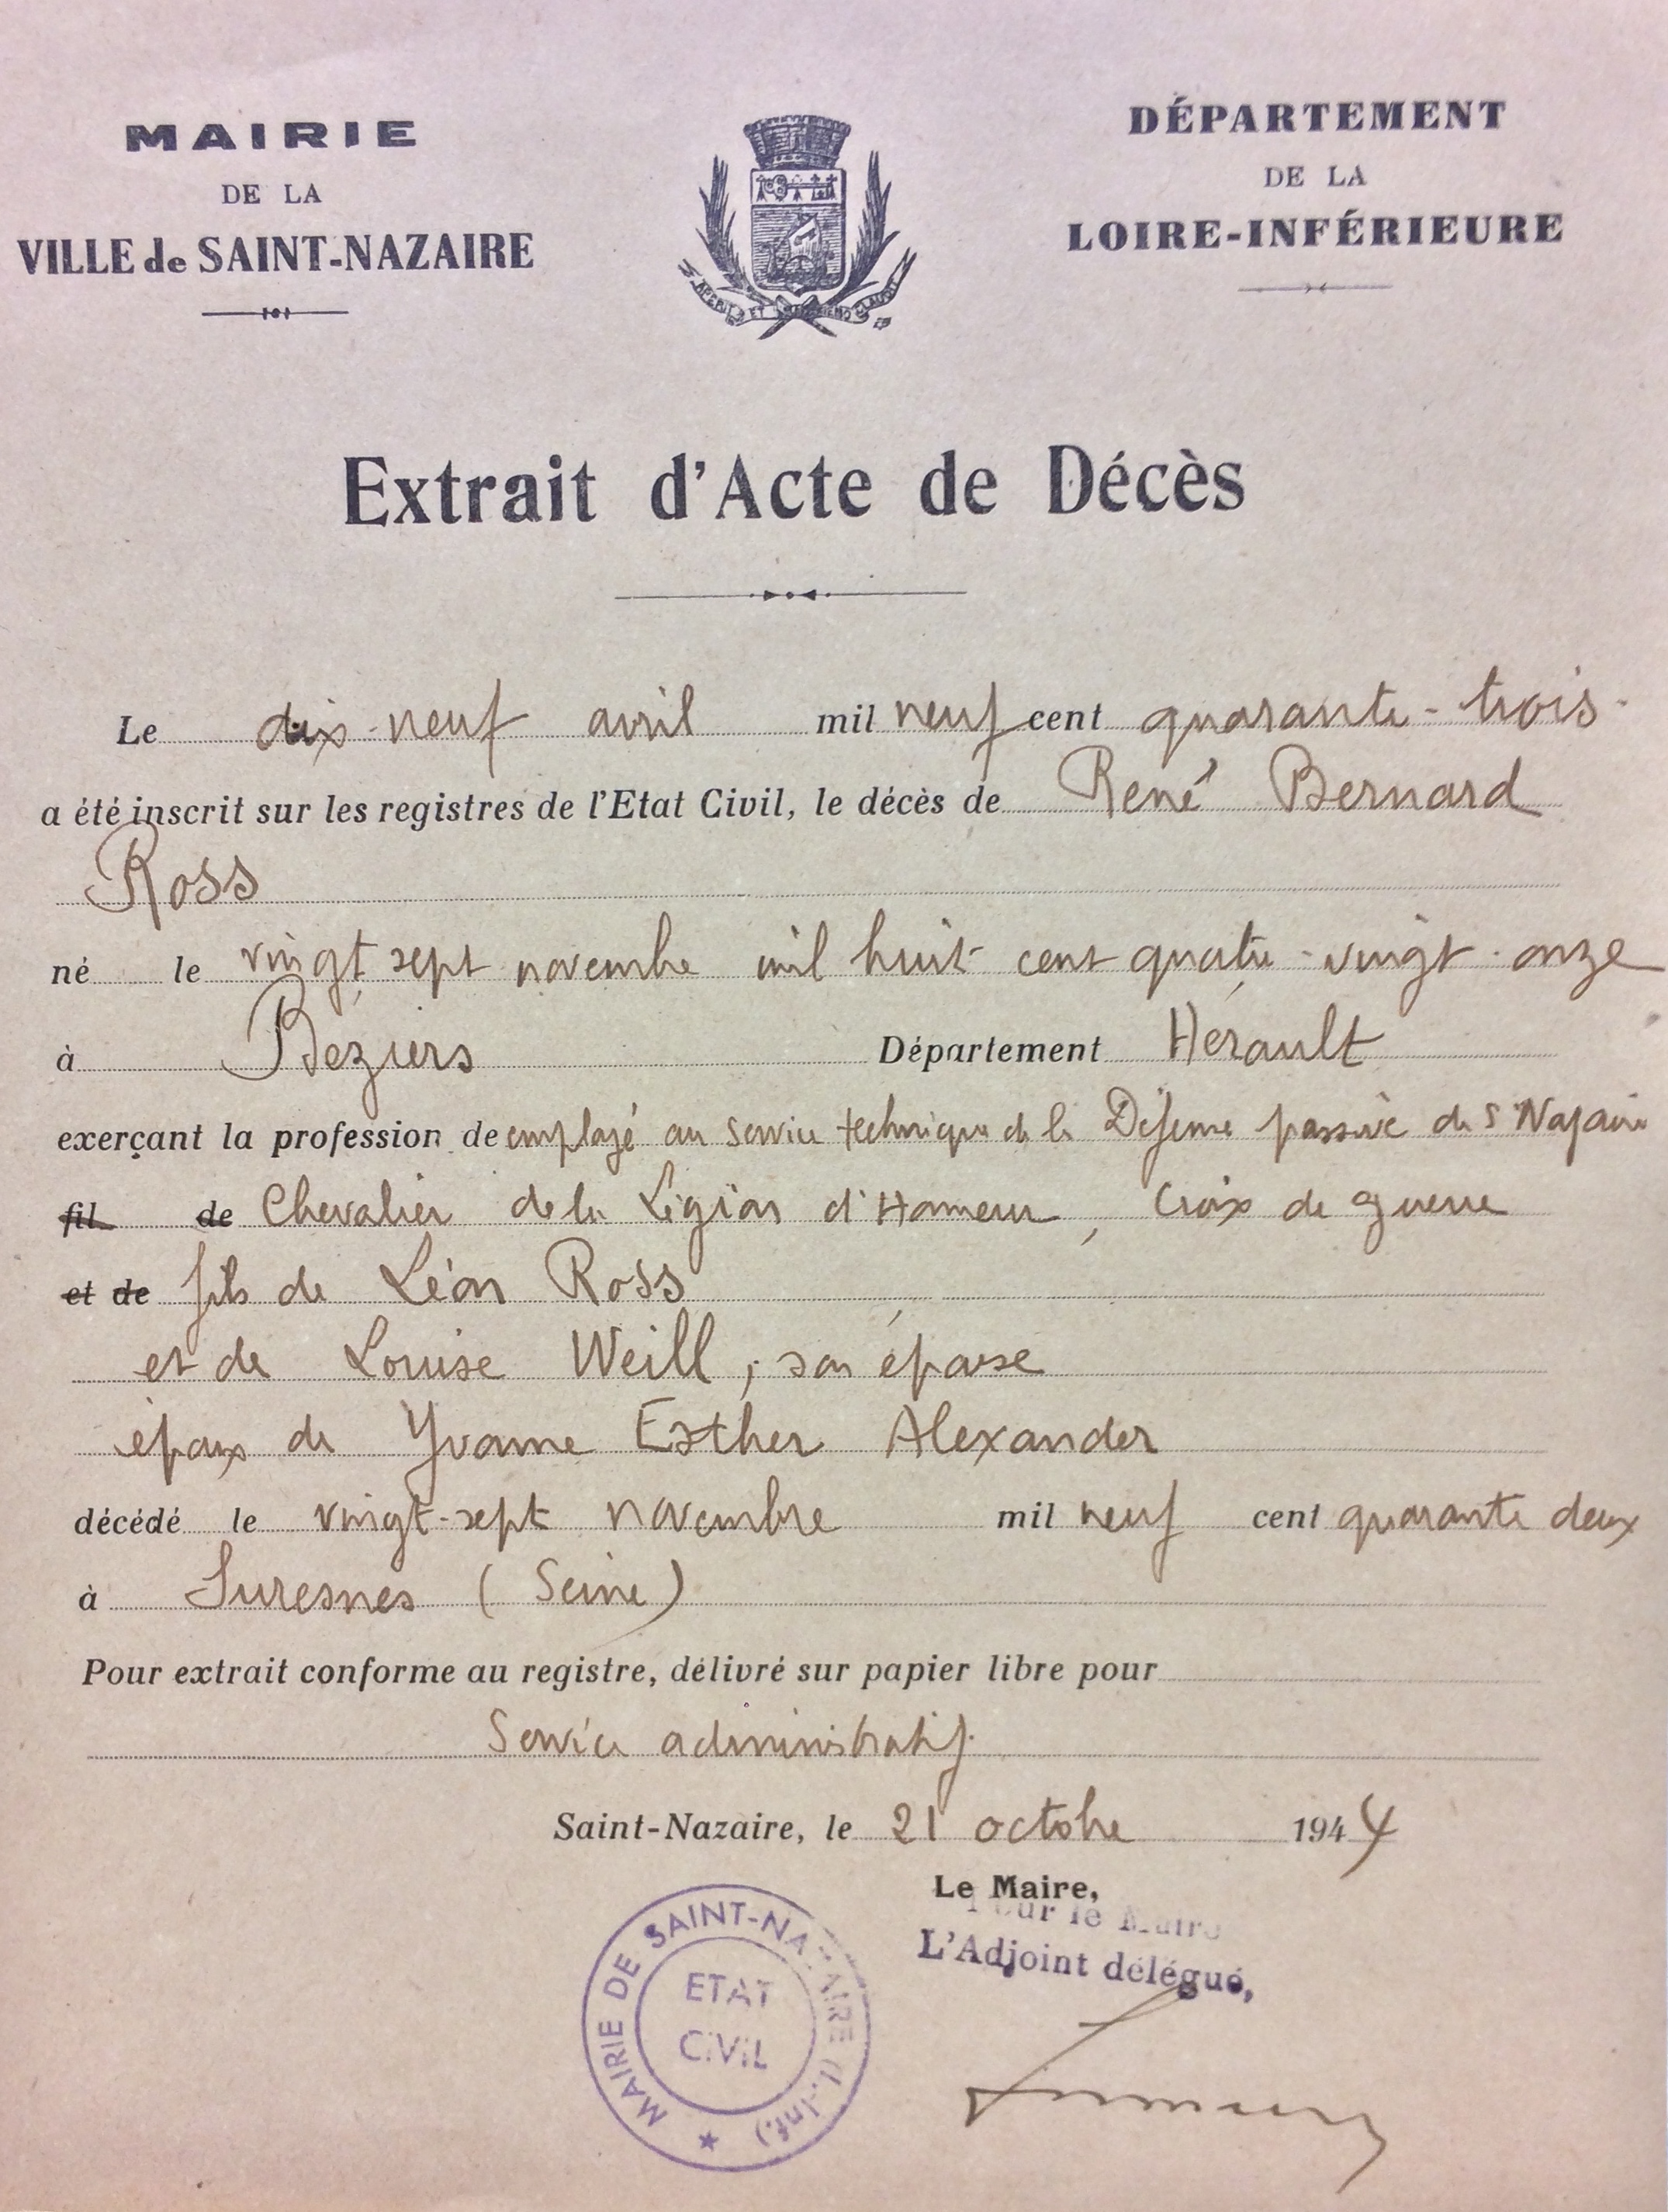 MAIRIE
DE LA
VILLE de SAINT-NAZAIRE
DÉPARTEMENT
DE LA
LOIRE-INFÉRIEURE
APERIT ET
Extrait d'Acte de Décès
Le dix-neuf avril mil neuf cent quarante-trois
a été inscrit sur les registres de l'Etat Civil, le décès de René Bernard
Ross
né le vingt sept novembre mil huit cent quatre-vingt-onze
à Béziers Département Hérault
exerçant la profession de employé au service technique de la Défense passive de St Nazaire
fil de Chevalier de la Légion d'Honneur, Croix de guerre
et de fils de Léon Ross
et de Louise Weill, son épouse
époux de Yvonne Esther Alexander
décédé le vingt-sept novembre mil neuf cent quarante deux
à Suresnes (Seine)
Pour extrait conforme au registre, délivré sur papier libre pour
Service administratif.
Saint-Nazaire, le 21 octobre 1944
Le Maire,
Pour le Maire
L'Adjoint délégué,
MAIRIE DE SAINT-NAZAIRE (L.-Inf.)
ETAT
CIVIL